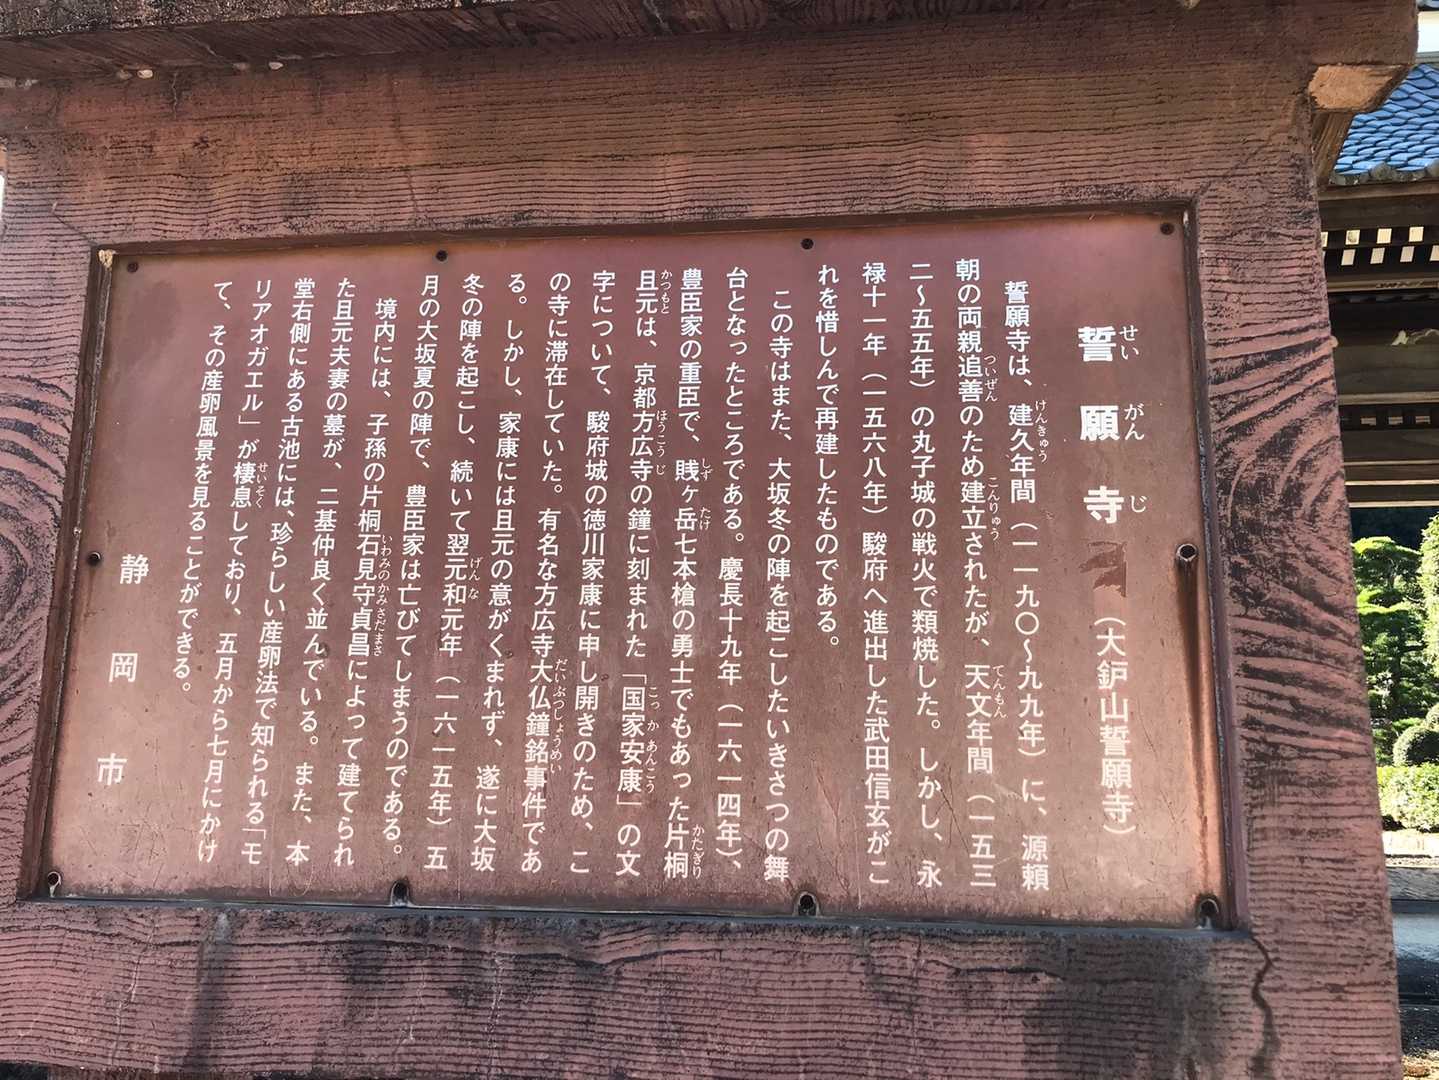 誓願寺（大鈩山誓願寺）
せいがんじ
誓願寺は、建久年間（一一九〇～九九年）に、源頼
けんきゅう
朝の両親追善のため建立されたが、天文年間（一五三
ついぜん こんりゅう てんもん
二～五五年）の丸子城の戦火で類焼した。しかし、永
禄十一年（一五六八年）駿府へ進出した武田信玄がこ
れを惜しんで再建したものである。
この寺はまた、大坂冬の陣を起こしたいきさつの舞
台となったところである。慶長十九年（一六一四年）、
豊臣家の重臣で、賎ヶ岳七本槍の勇士でもあった片桐
しず たけ かたぎり
且元は、京都方広寺の鐘に刻まれた「国家安康」の文
かつもと ほうこうじ こっかあんこう
字について、駿府城の徳川家康に申し開きのため、こ
の寺に滞在していた。有名な方広寺大仏鐘銘事件であ
だいぶつしょうめい
る。しかし、家康には且元の意がくまれず、遂に大坂
冬の陣を起こし、続いて翌元和元年（一六一五年）五
げんな
月の大坂夏の陣で、豊臣家は亡びてしまうのである。
境内には、子孫の片桐石見守貞昌によって建てられ
いわみのかみさだまさ
た且元夫妻の墓が、二基仲良く並んでいる。また、本
堂右側にある古池には、珍らしい産卵法で知られる「モ
リアオガエル」が棲息しており、五月から七月にかけ
せいそく
て、その産卵風景を見ることができる。
静岡市